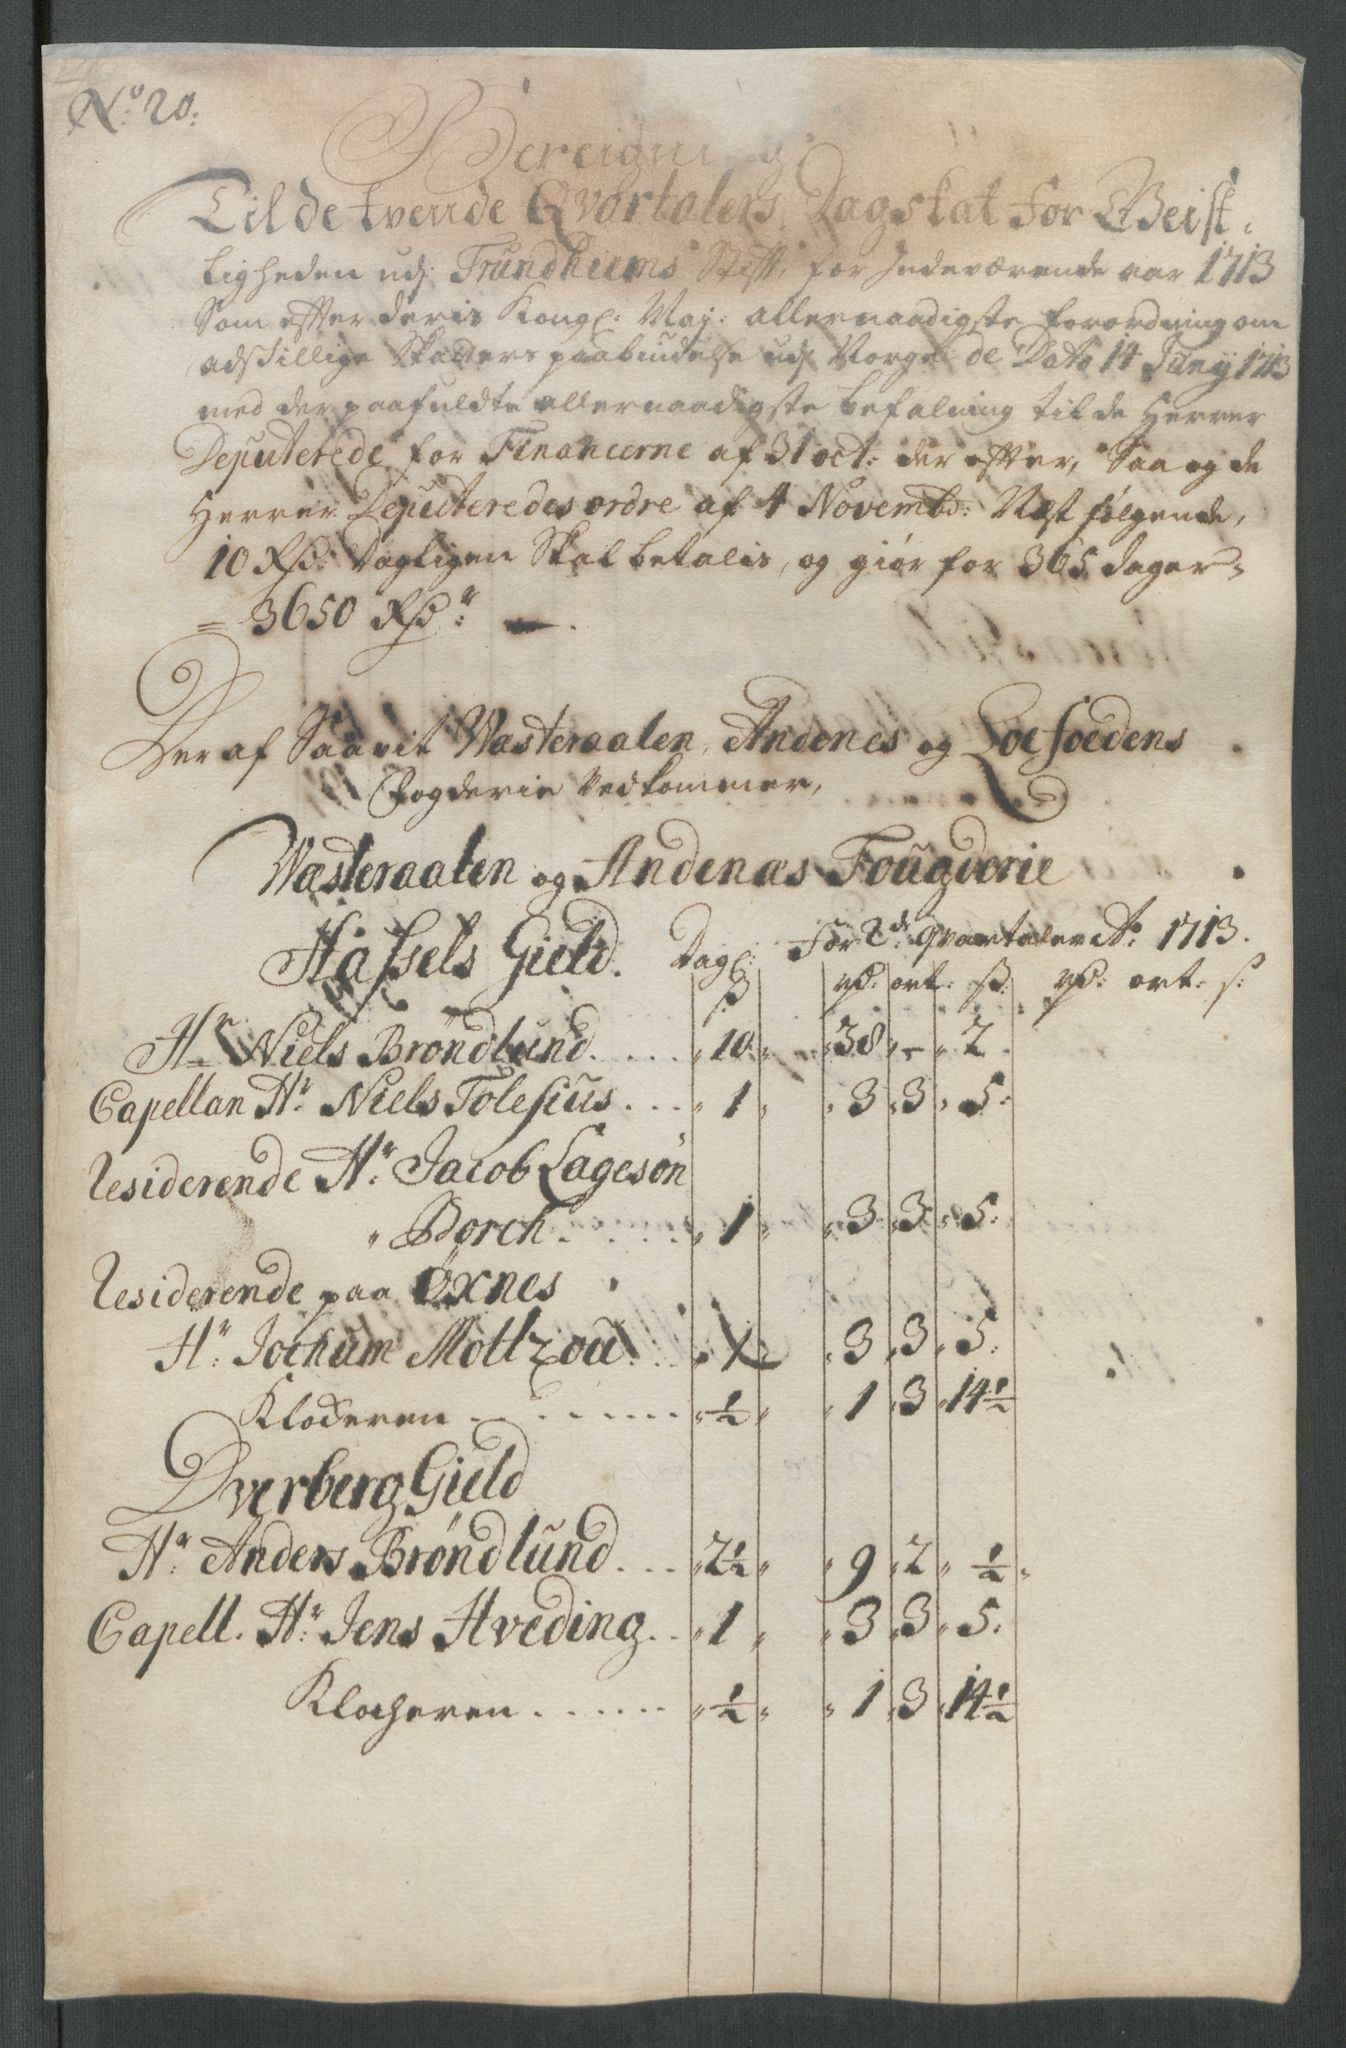 No 20:
Bereigning
Til de tvende Qvartalers Dagskat for Geist-
ligheden udj Trundhiems Stift, for Indeværende aar 1713
Som effter deris Kongl: May: allernaadigste forordning om
adskillige Skatters paabudelse udj Norge de Dato 14 Juny 1713
med der paafuldte allernaadigste befalning til de Herrer
Deputerede for Financerne af 31 oct: der effter, Saa og de
Herrer Deputeredes ordre af 4 Novembr: Næst følgende,
10 Rd: Dagligen Skal betalis, og giør for 365 dager
= 3650 Rdr:
Her af Saavit Wæsteraalen, Andenes og Loefoedens
Fogderie Vedkommer,
Wæsteraalen og Andenæs Fougderie
Hassels Gield. Dagl: For 2de qvartaler Ao 1713.
s rd: ort: s: rd: ort: s:
Hr Niels Brøndlund 10 38 - 2
Capellan Hr: Niels Tolesius 1 3 3 5
Residerende Hr: Jacob Lagesøn
Borch 1 3 3 5
Residerende paa Øxnes
Hr Jochum Moltzou 1 3 3 5
Klocheren ½ 1 3 14½
Dverberg Gield
Hr: Anders Brøndlund 2½ 9 2 ½
Capell. Hr: Jens Hveding 1 3 3 5
Klocheren ½ 1 3 14½